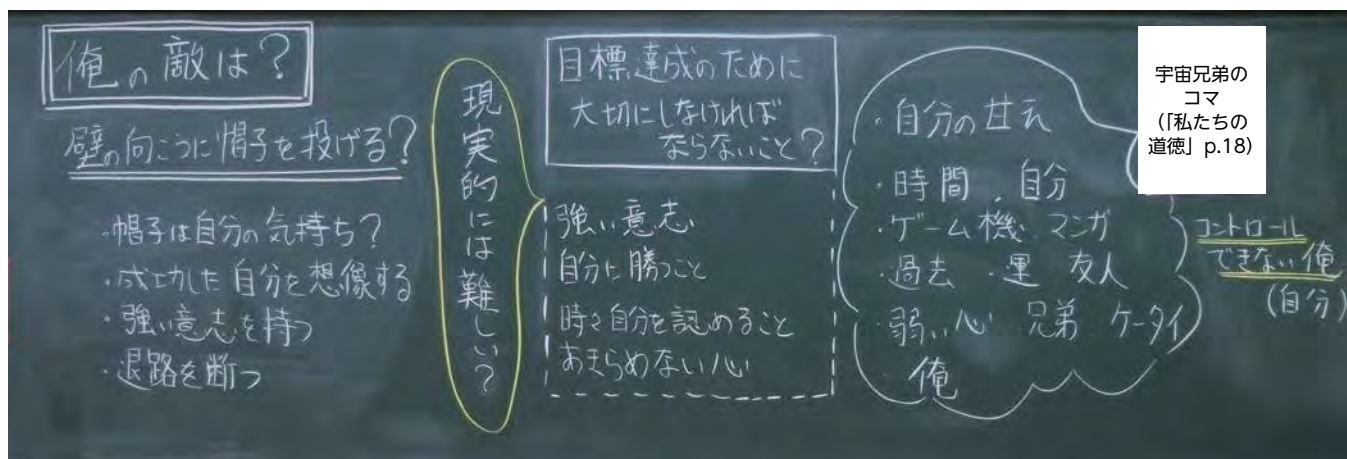 俺の敵は?
壁の向こうに帽子を投げる?
・帽子は自分の気持ち?
・成功した自分を想像する
・強い意志を持つ
・退路を断つ
現実的には難しい?
目標達成のために
大切にしなければ
ならないこと?
強い意志
自分に勝つこと
時々自分を認めること
あきらめない心
・自分の甘え
・時間、自分
・ゲーム機 マンガ
・過去 ・運 友人
・弱い心 兄弟 ケータイ
俺
宇宙兄弟の
コマ
(「私たちの
道徳」p.18)
コントロール
できない俺
(自分)